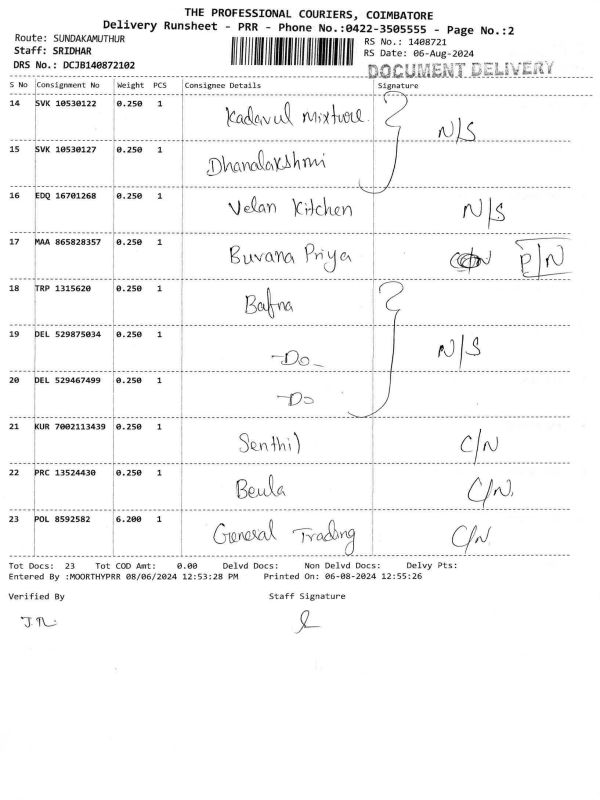 THE PROFESSIONAL COURIERS, COIMBATORE
Delivery Runsheet - PRR - Phone No.:0422-3505555 - Page No.:2
Route: SUNDAKAMUTHUR RS No.: 1408721
Staff: SRIDHAR RS Date: 06-Aug-2024
DRS No.: DCJB140872102 DOCUMENT DELIVERY
S No Consignment No Weight PCS Consignee Details Signature
14 SVK 10530122 0.250 1 Kadavul Mixture N/S
15 SVK 10530127 0.250 1 Dhanalakshmi
16 EDQ 16701268 0.250 1 Velan Kitchen N/S
17 MAA 865828357 0.250 1 Buvana Priya P/N
18 TRP 1315620 0.250 1 Bafna
19 DEL 529875034 0.250 1 -Do- N/S
20 DEL 529467499 0.250 1 -Do
21 KUR 7002113439 0.250 1 Senthil C/N
22 PRC 13524430 0.250 1 Beula C/N.
23 POL 8592582 6.200 1 General Trading C/N
Tot Docs: 23 Tot COD Amt: 0.00 Delvd Docs: Non Delvd Docs: Delvy Pts:
Entered By :MOORTHYPRR 08/06/2024 12:53:28 PM Printed On: 06-08-2024 12:55:26
Verified By Staff Signature